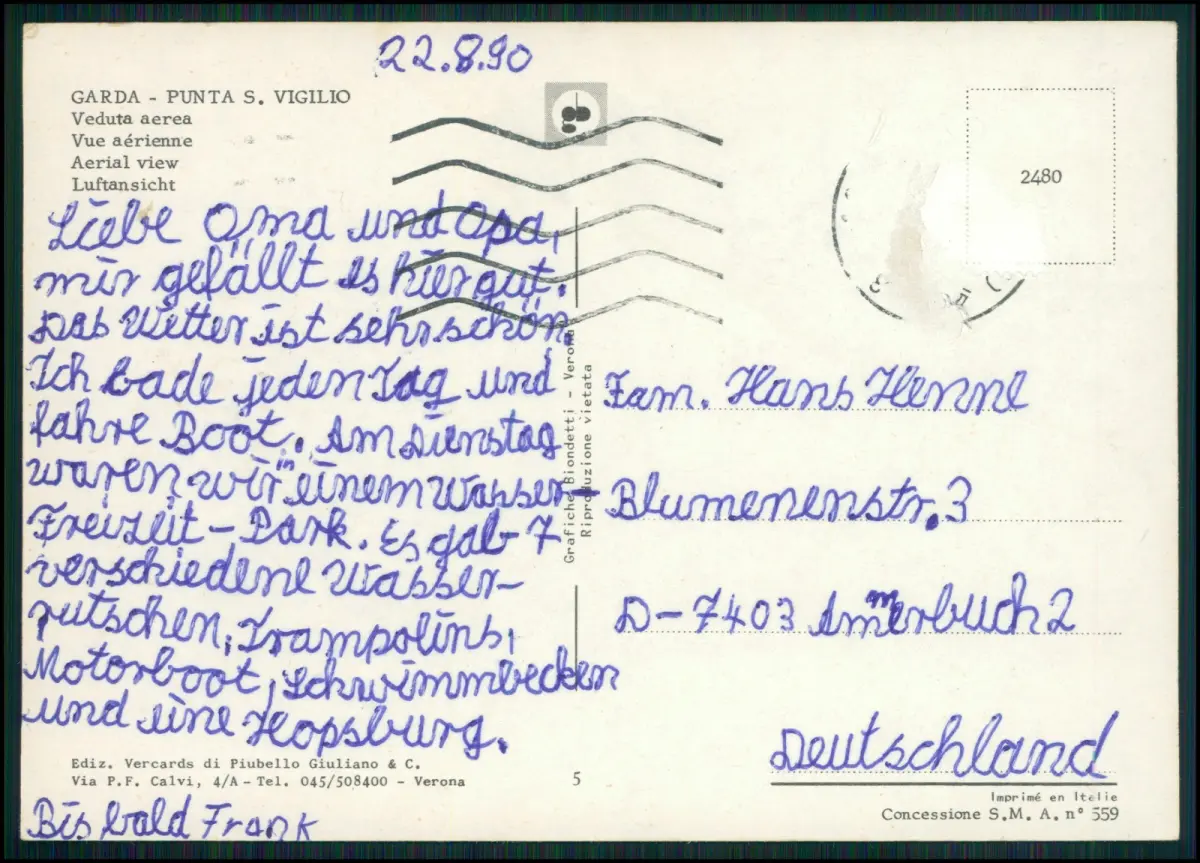 22.8.90
GARDA - PUNTA S. VIGILIO
Veduta aerea
Vue aérienne
Aerial view
Luftansicht
Liebe Oma und Opa,
mir gefällt es hier gut.
Das Wetter ist sehr schön.
Ich bade jeden Tag und
fahre Boot. Am Dienstag
waren wir in einem Wasser-
Freizeit-Park. Es gab 7
verschiedene Wasser-
rutschen, Trampolins,
Motorboot, Schwimmbecken
und eine Hopsburg.
Ediz. Vercards di Piubello Giuliano & C.
Via P.F. Calvi, 4/A - Tel. 045/508400 - Verona
Bis bald Frank
Grafiche Biondetti - Verona
Riproduzione vietata
5
2480
Fam. Hans Henne
Blumenenstr. 3
D-7403 Ammerbuch 2
Deutschland
Imprimé en Italie
Concessione S.M.A. n° 559